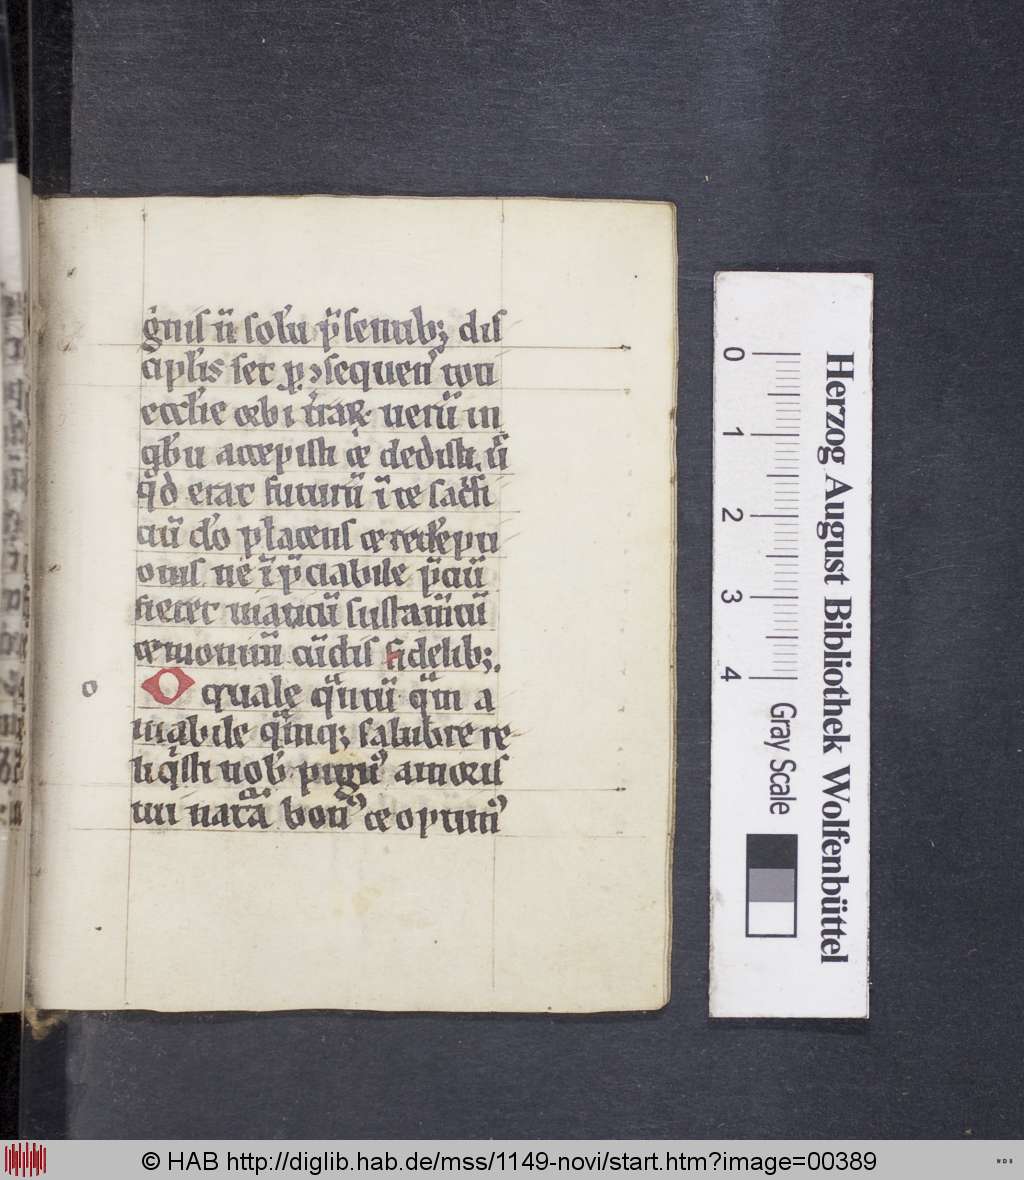 g̾nis n̄ solū p̄sentib; dis
ciplis set ꝑ ↄsequen̄ toti
eccl̄ie orbi t̾raꝝ uerū in
qb̾ū accepisti ce dedisti. ū
qd̾ erat futurū ī te sac̾fi
ciū d̾o placens ce redēpti
onis ne īp̄ciabile p̄ciū
fieret mācū
cūctis fidelib;.
o
O quale q̄ntū q̄m a
mabile q̄mq; salubre re
liq̾sti nob̾ pign̾ amoris
tui bon̾ ce optim̾
Herzog August Bibliothek Wolfenbüttel
0 1 2 3 4 Gray Scale
© HAB http://diglib.hab.de/mss/1149-novi/start.htm?image=00389